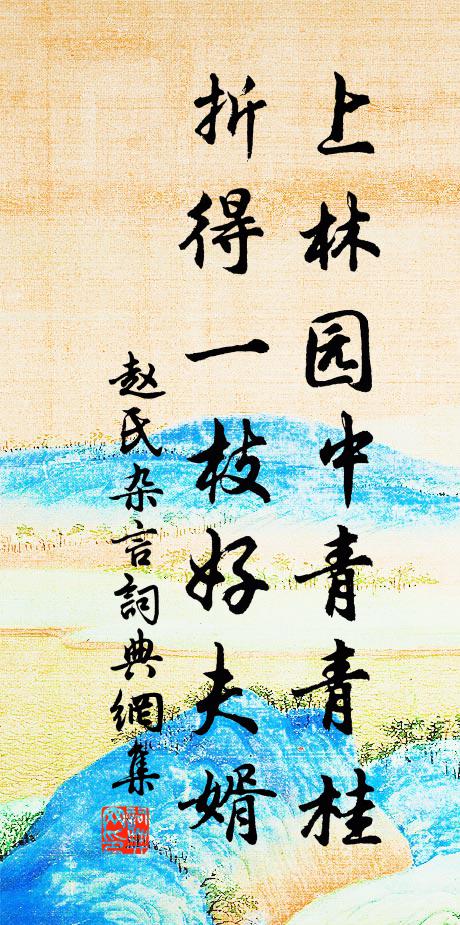 上林园中青青桂
折得一枝好夫婿
赵氏杂言詞典網集